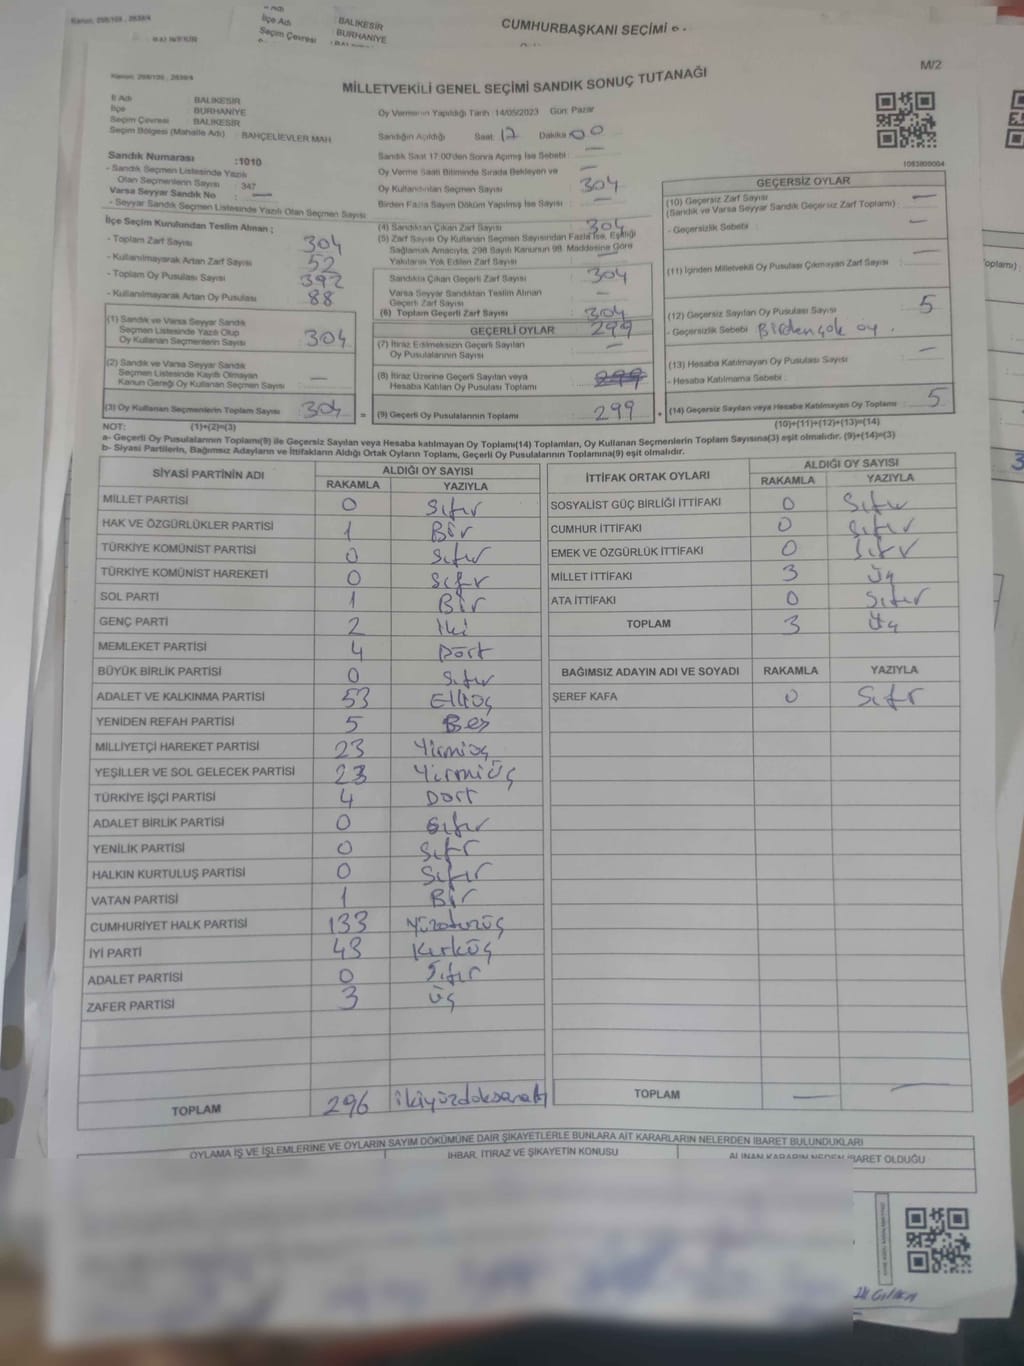 Kanun: 298/105 , 2839/4
İlçe Adı : BALIKESİR
Seçim Çevresi : BURHANİYE
CUMHURBAŞKANI SEÇİMİ
M/2
Kanun: 298/105 , 2839/4
MİLLETVEKİLİ GENEL SEÇİMİ SANDIK SONUÇ TUTANAĞI
İl Adı : BALIKESİR
İlçe : BURHANİYE
Seçim Çevresi : BALIKESİR
Seçim Bölgesi (Mahalle Adı) : BAHÇELİEVLER MAH
Sandık Numarası :1010
- Sandık Seçmen Listesinde Yazılı Olan Seçmenlerin Sayısı : 347
Varsa Seyyar Sandık No : —
- Seyyar Sandık Seçmen Listesinde Yazılı Olan Seçmen Sayısı
Oy Vermenin Yapıldığı Tarih :14/05/2023 Gün: Pazar
Sandığın Açıldığı Saat: 17 Dakika: 00
Sandık Saat 17:00'den Sonra Açılmış İse Sebebi : —
Oy Verme Saati Bitiminde Sırada Bekleyen ve Oy Kullandırılan Seçmen Sayısı : —
304
Birden Fazla Sayım Döküm Yapılmış İse Sayısı : —
İlçe Seçim Kurulundan Teslim Alınan ;
- Toplam Zarf Sayısı : 304
- Kullanılmayarak Artan Zarf Sayısı : 52
- Toplam Oy Pusulası Sayısı : 392
- Kullanılmayarak Artan Oy Pusulası : 88
(1) Sandık ve Varsa Seyyar Sandık
Seçmen Listesinde Yazılı Olup
Oy Kullanan Seçmenlerin Sayısı : 304
(2) Sandık ve Varsa Seyyar Sandık
Seçmen Listesinde Kayıtlı Olmayan
Kanun Gereği Oy Kullanan Seçmen Sayısı : —
(3) Oy Kullanan Seçmenlerin Toplam Sayısı : 304
(4) Sandıktan Çıkan Zarf Sayısı : 304
(5) Zarf Sayısı Oy Kullanan Seçmen Sayısından Fazla İse, Eşitliği
Sağlamak Amacıyla, 298 Sayılı Kanunun 98. Maddesine Göre
Yakılarak Yok Edilen Zarf Sayısı : —
Sandıkta Çıkan Geçerli Zarf Sayısı : 304
Varsa Seyyar Sandıktan Teslim Alınan
Geçerli Zarf Sayısı : —
(6) Toplam Geçerli Zarf Sayısı : 304
GEÇERLİ OYLAR 299
(7) İtiraz Edilmeksizin Geçerli Sayılan
Oy Pusulalarının Sayısı : —
(8) İtiraz Üzerine Geçerli Sayılan veya
Hesaba Katılan Oy Pusulası Toplamı : 299
= (9) Geçerli Oy Pusulalarının Toplamı : 299
1083809004
GEÇERSİZ OYLAR
(10) Geçersiz Zarf Sayısı
(Sandık ve Varsa Seyyar Sandık Geçersiz Zarf Toplamı) : —
- Geçersizlik Sebebi : —
(11) İçinden Milletvekili Oy Pusulası Çıkmayan Zarf Sayısı : —
(12) Geçersiz Sayılan Oy Pusulası Sayısı : 5
- Geçersizlik Sebebi : Birden çok oy.
(13) Hesaba Katılmayan Oy Pusulası Sayısı : —
- Hesaba Katılmama Sebebi :
+ (14) Geçersiz Sayılan veya Hesaba Katılmayan Oy Toplamı : 5
NOT: (1)+(2)=(3) (10)+(11)+(12)+(13)=(14)
a- Geçerli Oy Pusulalarının Toplamı(9) ile Geçersiz Sayılan veya Hesaba katılmayan Oy Toplamı(14) Toplamları, Oy Kullanan Seçmenlerin Toplam Sayısına(3) eşit olmalıdır. (9)+(14)=(3)
b- Siyasi Partilerin, Bağımsız Adayların ve İttifakların Aldığı Ortak Oyların Toplamı, Geçerli Oy Pusulalarının Toplamına(9) eşit olmalıdır.
SİYASİ PARTİNİN ADI ALDIĞI OY SAYISI
RAKAMLA YAZIYLA
MİLLET PARTİSİ 0 Sıfır
HAK VE ÖZGÜRLÜKLER PARTİSİ 1 Bir
TÜRKİYE KOMÜNİST PARTİSİ 0 Sıfır
TÜRKİYE KOMÜNİST HAREKETİ 0 Sıfır
SOL PARTİ 1 Bir
GENÇ PARTİ 2 İki
MEMLEKET PARTİSİ 4 Dört
BÜYÜK BİRLİK PARTİSİ 0 Sıfır
ADALET VE KALKINMA PARTİSİ 53 Elliüç
YENİDEN REFAH PARTİSİ 5 Beş
MİLLİYETÇİ HAREKET PARTİSİ 23 Yirmiüç
YEŞİLLER VE SOL GELECEK PARTİSİ 23 Yirmiüç
TÜRKİYE İŞÇİ PARTİSİ 4 Dört
ADALET BİRLİK PARTİSİ 0 Sıfır
YENİLİK PARTİSİ 0 Sıfır
HALKIN KURTULUŞ PARTİSİ 0 Sıfır
VATAN PARTİSİ 1 Bir
CUMHURİYET HALK PARTİSİ 133 Yüzotuzüç
İYİ PARTİ 43 Kırküç
ADALET PARTİSİ 0 Sıfır
ZAFER PARTİSİ 3 Üç
TOPLAM 296 ikiyüzdoksanaltı
İTTİFAK ORTAK OYLARI ALDIĞI OY SAYISI
RAKAMLA YAZIYLA
SOSYALİST GÜÇ BİRLİĞİ İTTİFAKI 0 Sıfır
CUMHUR İTTİFAKI 0 Sıfır
EMEK VE ÖZGÜRLÜK İTTİFAKI 0 Sıfır
MİLLET İTTİFAKI 3 Üç
ATA İTTİFAKI 0 Sıfır
TOPLAM 3 Üç
BAĞIMSIZ ADAYIN ADI VE SOYADI RAKAMLA YAZIYLA
ŞEREF KAFA 0 Sıfır
TOPLAM — —
OYLAMA İŞ VE İŞLEMLERİNE VE OYLARIN SAYIM DÖKÜMÜNE DAİR ŞİKAYETLERLE BUNLARA AİT KARARLARIN NELERDEN İBARET BULUNDUKLARI
İHBAR, İTİRAZ VE ŞİKAYETİN KONUSU ALINAN KARARIN NEDEN İBARET OLDUĞU